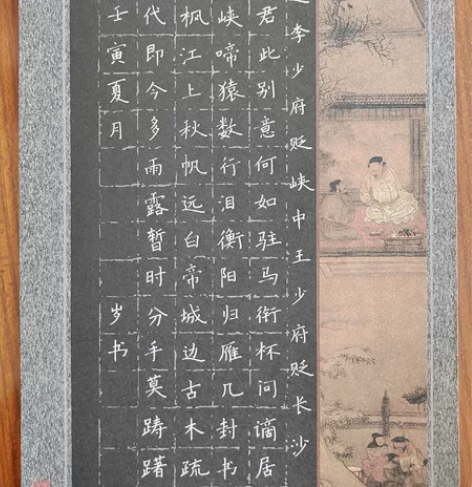 李少府贬峡中王少府贬长沙
君此别意何如驻马衔杯问谪居
峡啼猿数行泪衡阳归雁几封书
枫江上秋帆远白帝城边古木疏
代即今多雨露暂时分手莫踌躇
壬寅夏月 岁书